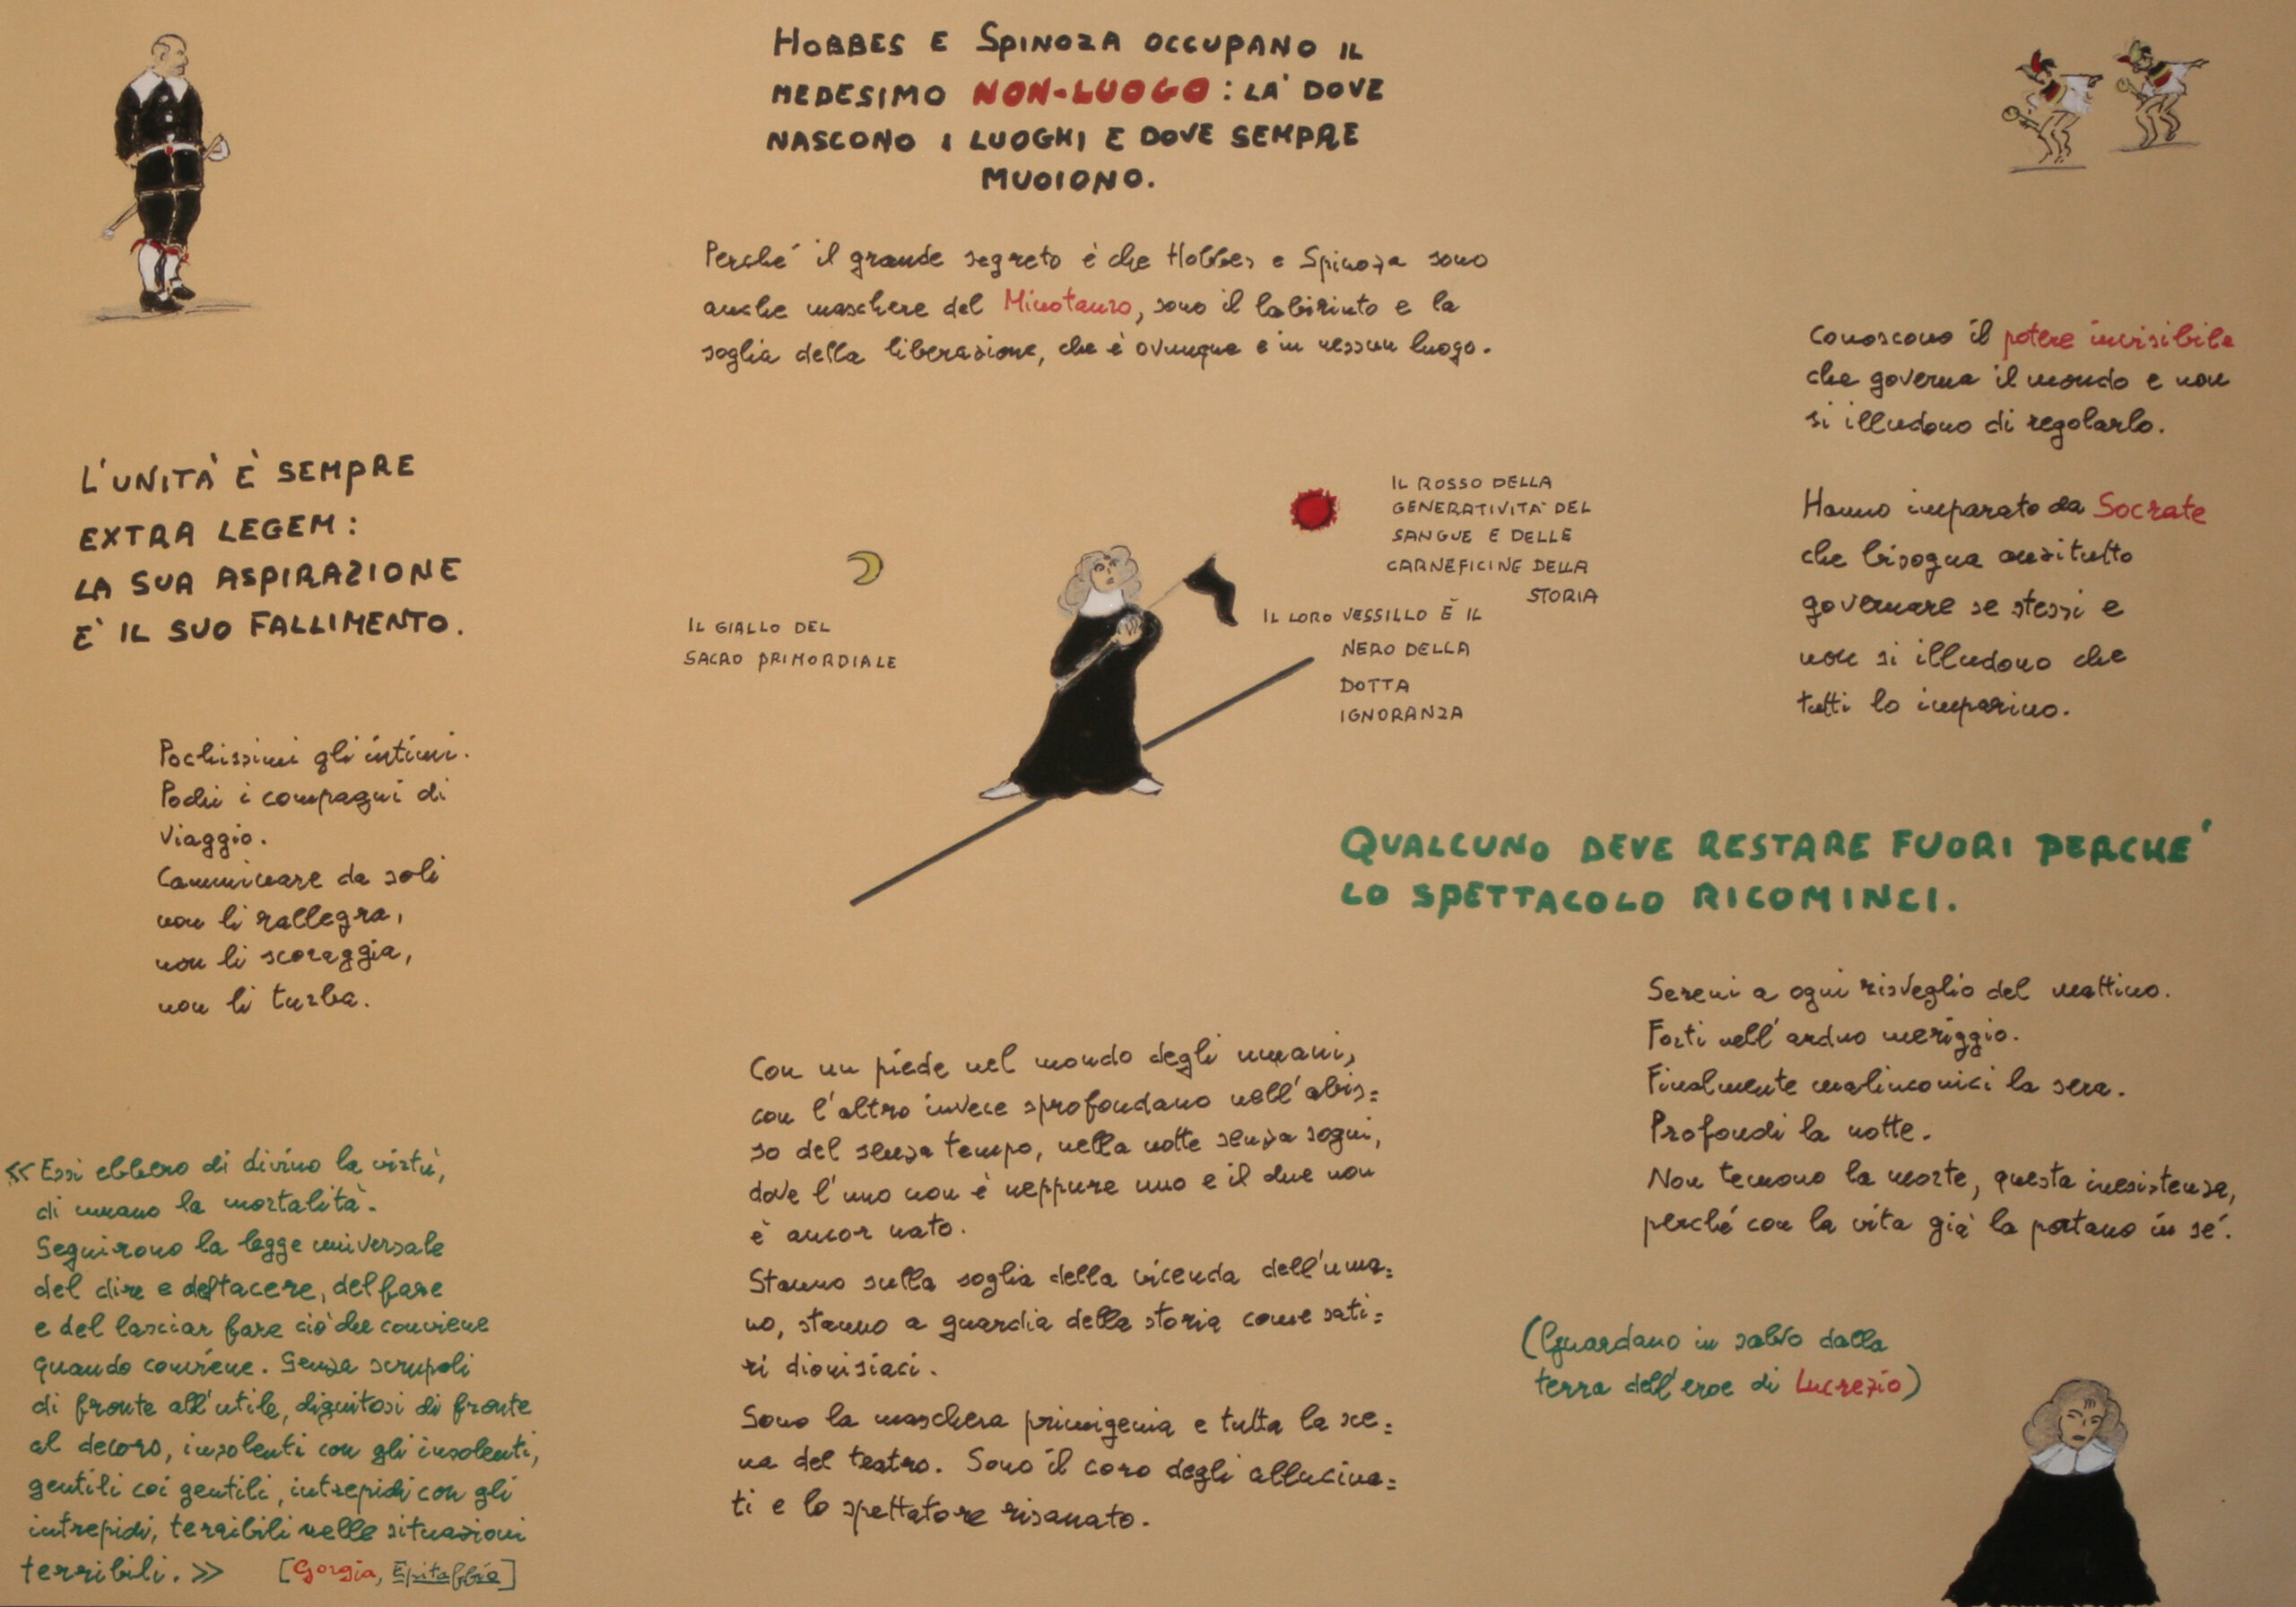 HOBBES E SPINOZA OCCUPANO IL
MEDESIMO NON-LUOGO: LA' DOVE
NASCONO I LUOGHI E DOVE SEMPRE
MUOIONO.
Perché il grande segreto è che Hobbes e Spinoza sono
anche maschere del Minotauro, sono il labirinto e la
soglia della liberazione, che è ovunque e in nessun luogo.
L'UNITÀ È SEMPRE
EXTRA LEGEM:
LA SUA ASPIRAZIONE
E' IL SUO FALLIMENTO.
Pochissimi gli intimi.
Pochi i compagni di
viaggio.
Camminare da soli
non li rallegra,
non li scoraggia,
non li turba.
<<Essi ebbero di divino la virtù,
di umano la mortalità.
Seguirono la legge universale
del dire e del tacere, del fare
e del lasciar fare ciò che conviene
quando conviene. Senza scrupoli
di fronte all'utile, dignitosi di fronte
al decoro, insolenti con gli insolenti,
gentili coi gentili, intrepidi con gli
intrepidi, terribili nelle situazioni
terribili.>> [Gorgia, Epitaffio]
IL GIALLO DEL
SACRO PRIMORDIALE
IL ROSSO DELLA
GENERATIVITÀ DEL
SANGUE E DELLE
CARNEFICINE DELLA
STORIA
IL LORO VESSILLO È IL
NERO DELLA
DOTTA
IGNORANZA
Con un piede nel mondo degli umani,
con l'altro invece sprofondano nell'abis=
so del senza tempo, nella notte senza sogni,
dove l'uno non è neppure uno e il due non
è ancor nato.
Stanno sulla soglia della vicenda dell'uma=
no, stanno a guardia della storia come sati=
ri dionisiaci.
Sono la maschera primigenia e tutta la sce=
na del teatro. Sono il coro degli allucina=
ti e lo spettatore risanato.
Conoscono il potere invisibile
che governa il mondo e non
si illudono di regolarlo.
Hanno imparato da Socrate
che bisogna anzitutto
governare se stessi e
non si illudono che
tutti lo imparino.
QUALCUNO DEVE RESTARE FUORI PERCHE'
LO SPETTACOLO RICOMINCI.
Sereni a ogni risveglio del mattino.
Forti nell'arduo meriggio.
Finalmente malinconici la sera.
Profondi la notte.
Non temono la morte, questa inesistenza,
perché con la vita già la portano in sé.
(Guardano in salvo dalla
terra dell'eroe di Lucrezio)